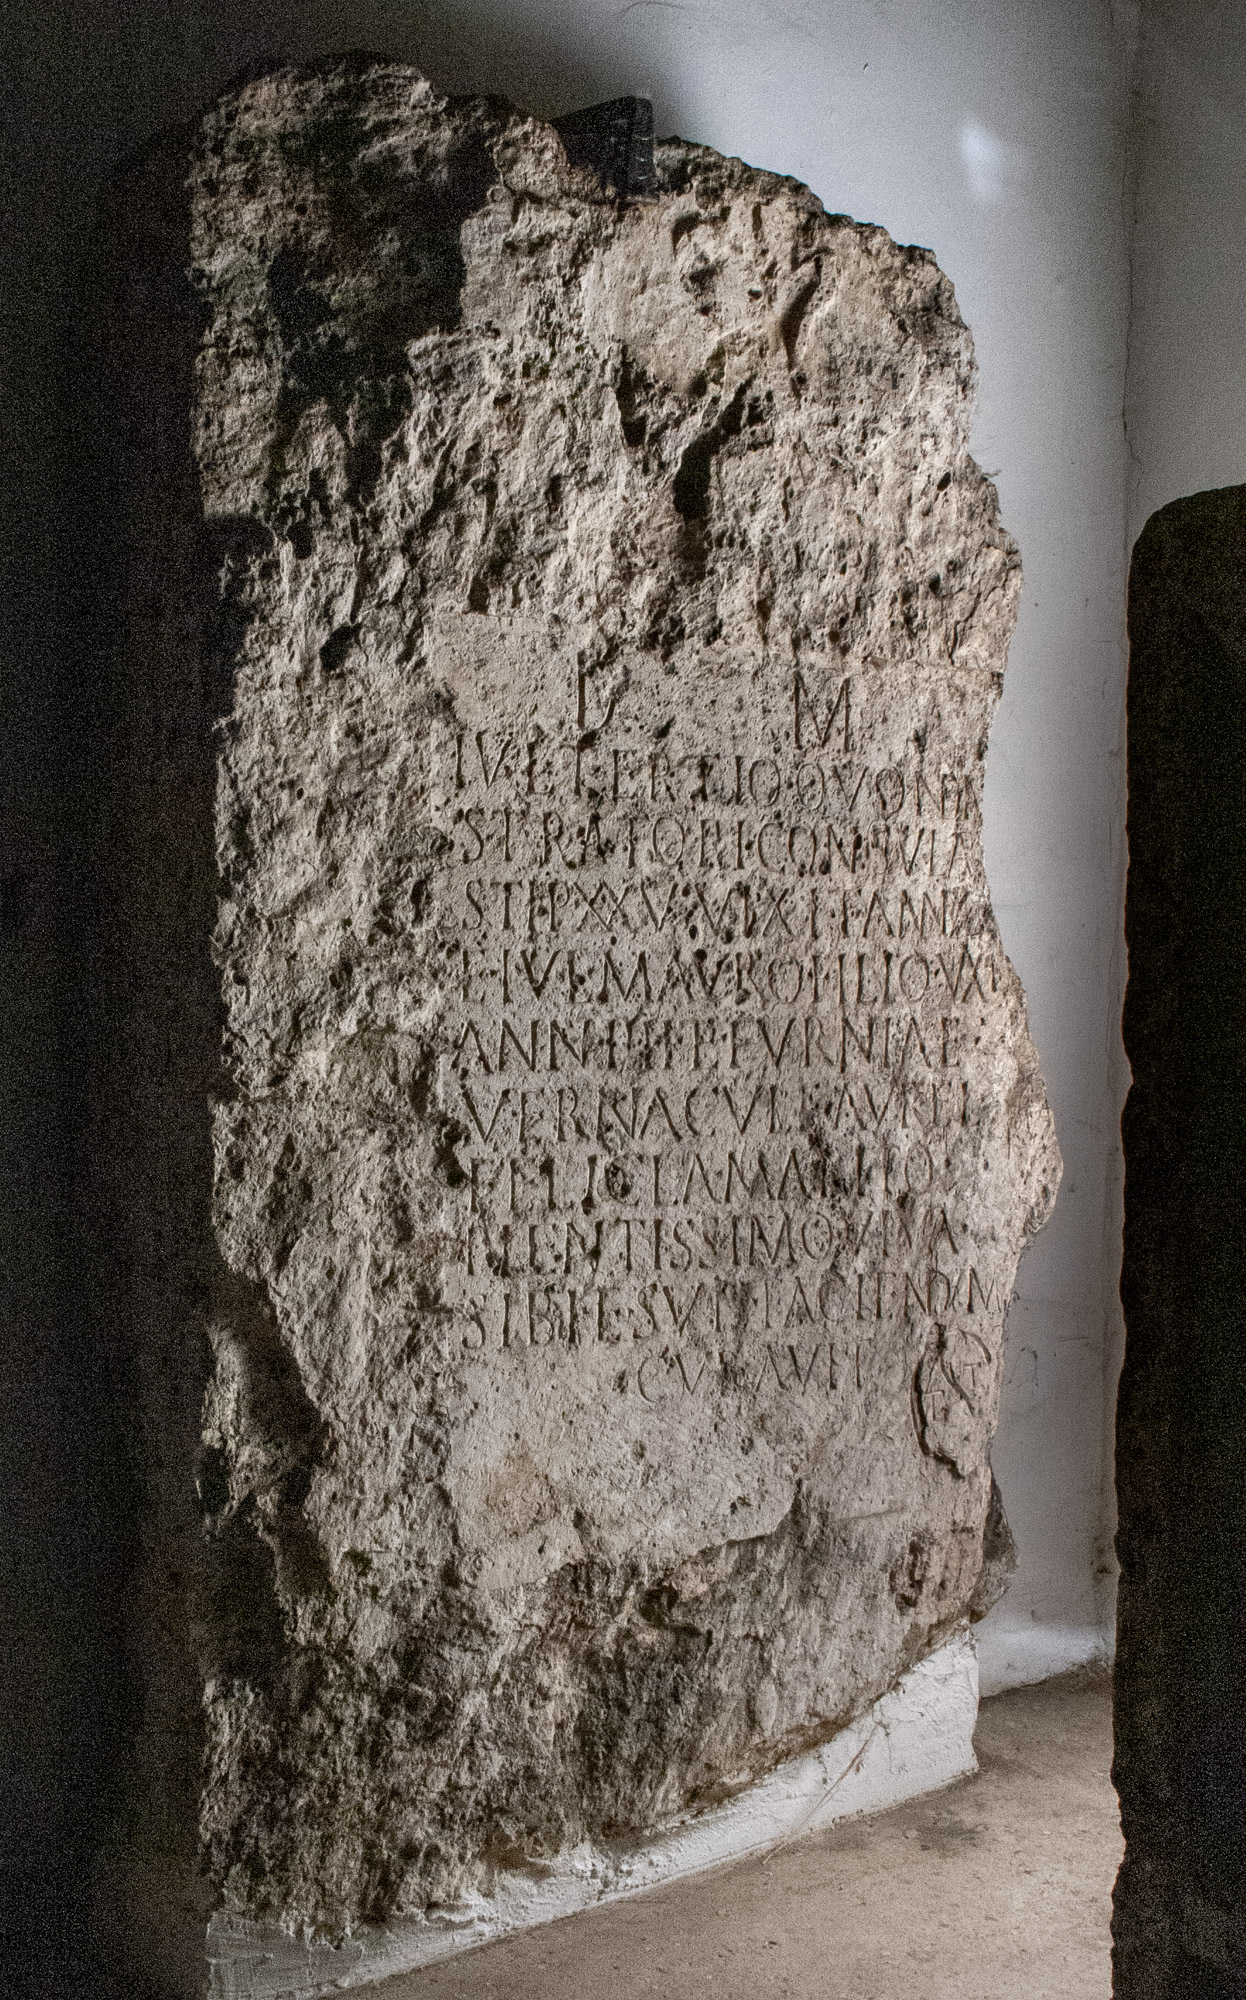 D M
IVL TERTIO QVONA
STRATORI CONSVLA
STIP XXV VIXIT ANN
E IVL MAVRO FILIO VIXI
ANN III FVRNIAE
VERNACVLE AVREL
FELICLA MARITO
PIENTISSIMO VIVA
SIBI E SVIS FACIENDVM
CVRAVIT